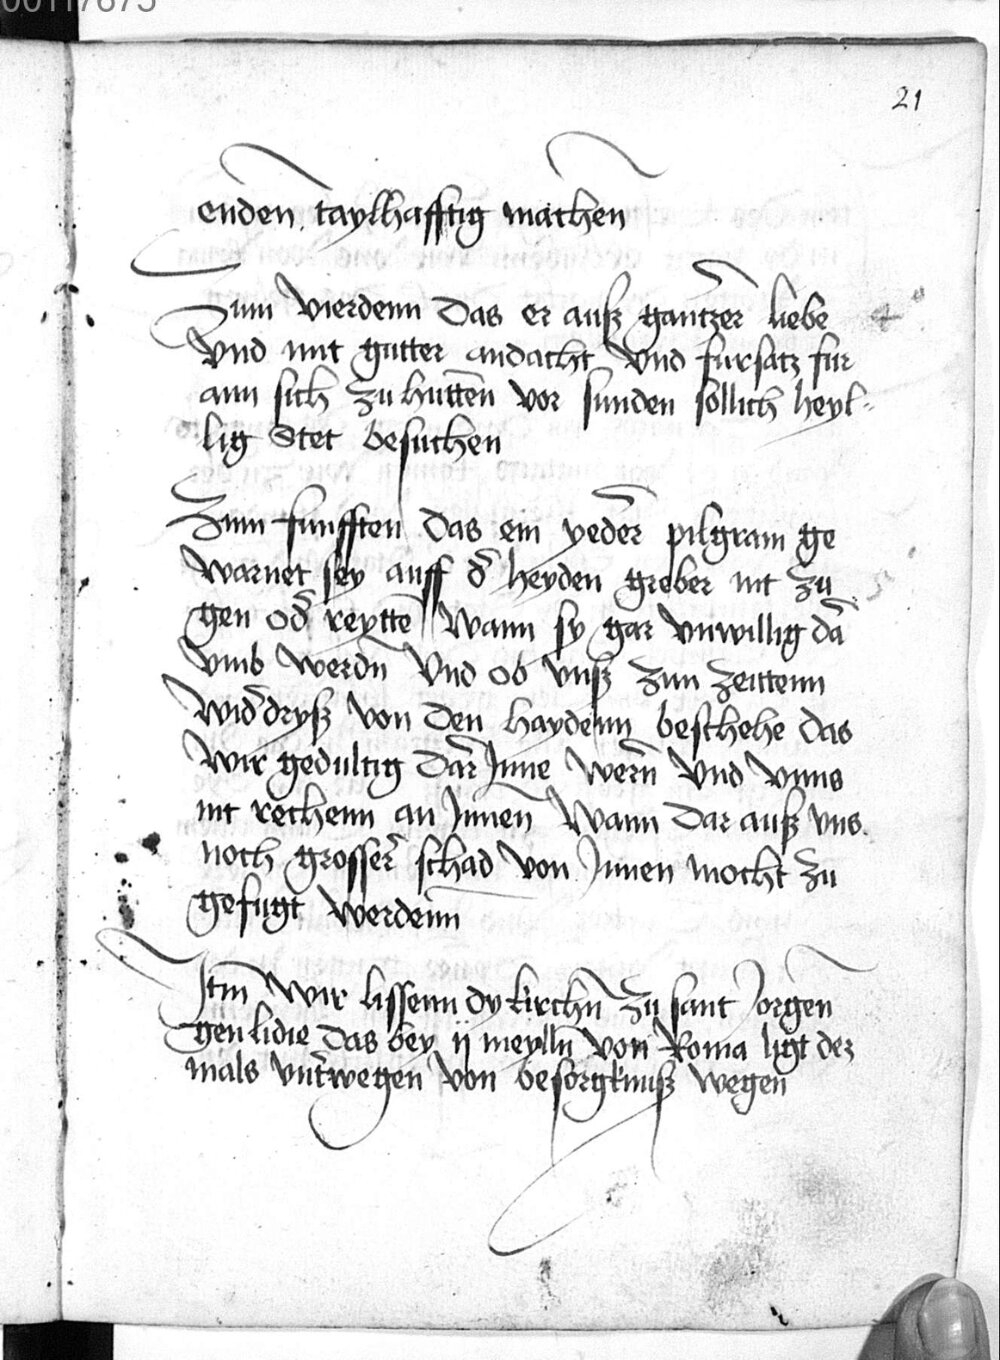 00117875
21
enden taylhafftig machen
Zum vierdenn das er auß gantzer liebe
vnd mit gutter andacht vnd fursatz fur
ann sich zu hutten vor sunden sollich heyl-
lig Stet besuchen
Zum funfften das ein yeder pilgram ge
warnet sey auff d' heyden greber nit zu
gen od' reytte wann sy gar vnwillig da
vmb werdn Vnd ob vnß zun zeittenn
wid'dryß von den haydenn beschehe das
wir gedultig dar Jnne wern vnd vnns
nit rechenn an Jnnen Wann dar auß vns
noch grosser schad von Jnnen mocht zu
gefugt werdenn
Jtm Wir liessenn dy kirchn zu sant Jorgen
gen lidie das bey ij meylln von Roma ligt dez
mals vnt'wegen von besorgknuß wegen